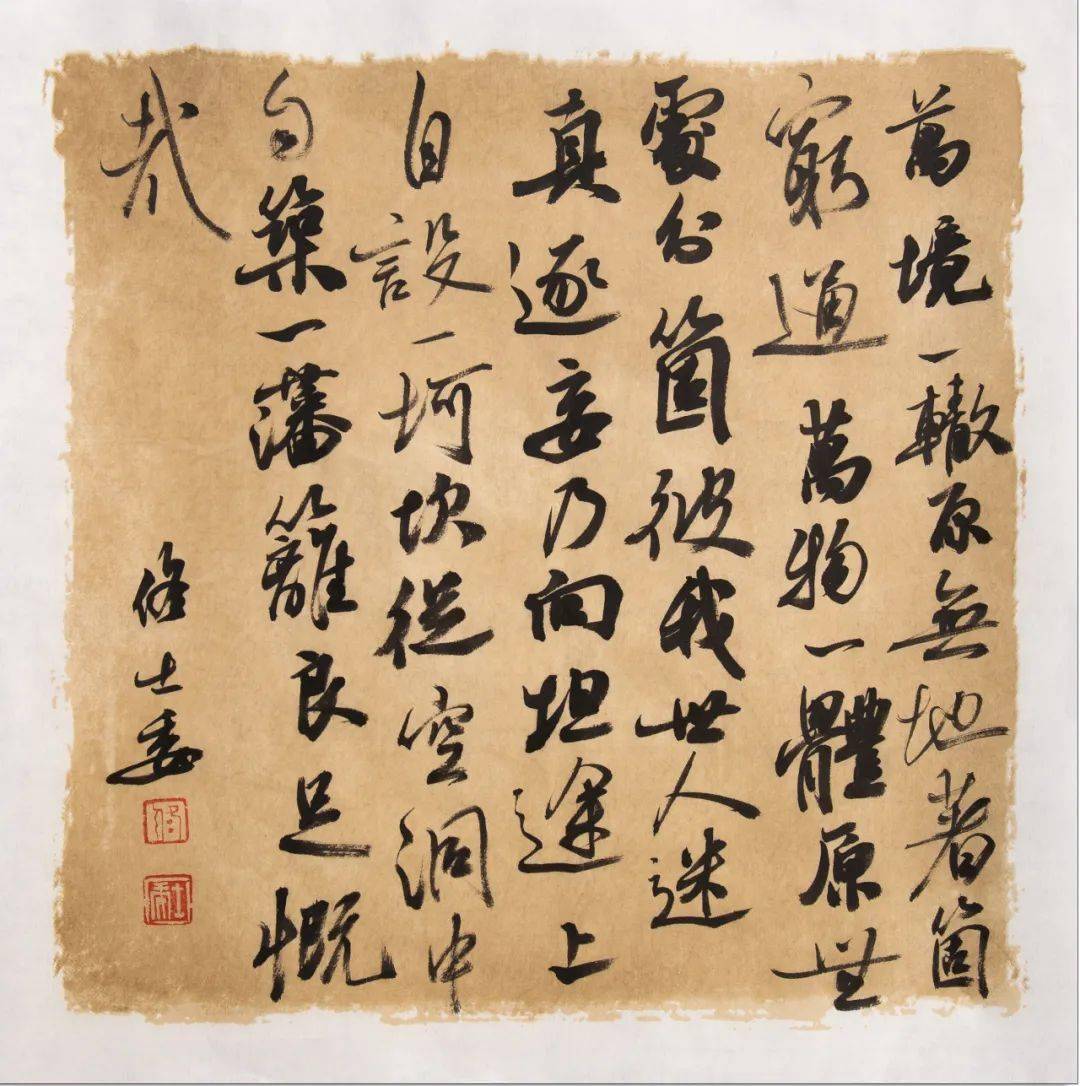 萬境一轍原無地著箇
窮通萬物一體原無
處分箇彼我世人迷
真逐妄乃向坦途上
自設一坷坎從空洞中
自築一藩籬良足慨
哉